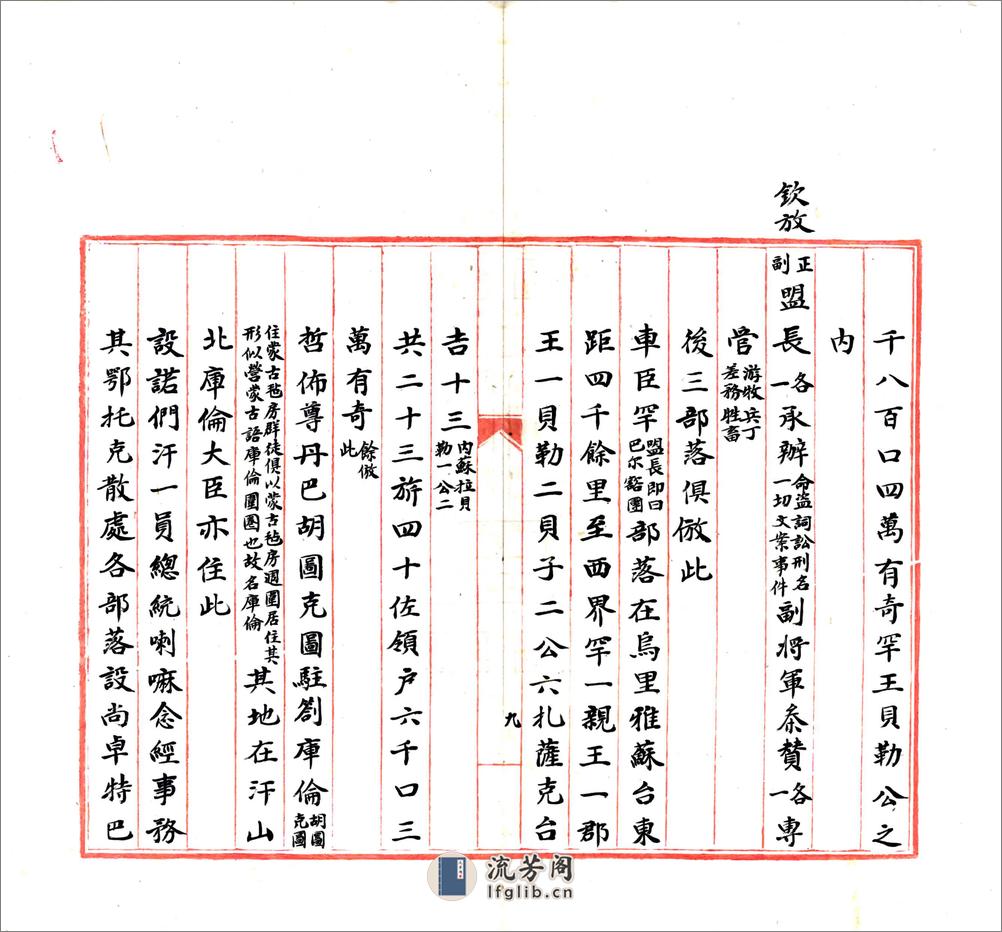 千八百口四萬有奇罕王貝勒公之
內
欽放
正副盟長各一承辦命盜詞訟刑名一切文案事件副將軍叅贊各一專
管游牧兵丁差務牲畜
後三部落俱倣此
車臣罕盟長即曰巴尔豁圖部落在烏里雅蘇台東
距四千餘里至西界罕一親王一郡
王一貝勒二貝子二公六札薩克台
九
吉十三內蘇拉貝勒一公二
共二十三旂四十佐領户六千口三
萬有奇餘倣此
哲佈尊丹巴胡圖克圖駐劄庫倫胡圖克圖
住蒙古毡房群徒俱以蒙古毡房週圍居住其形似營蒙古語庫倫圍圈也故名庫倫其地在汗山
北庫倫大臣亦住此
設諾們汗一員總統喇嘛念經事務
其鄂托克散處各部落設尚卓特巴
流芳阁
lfglib.cn